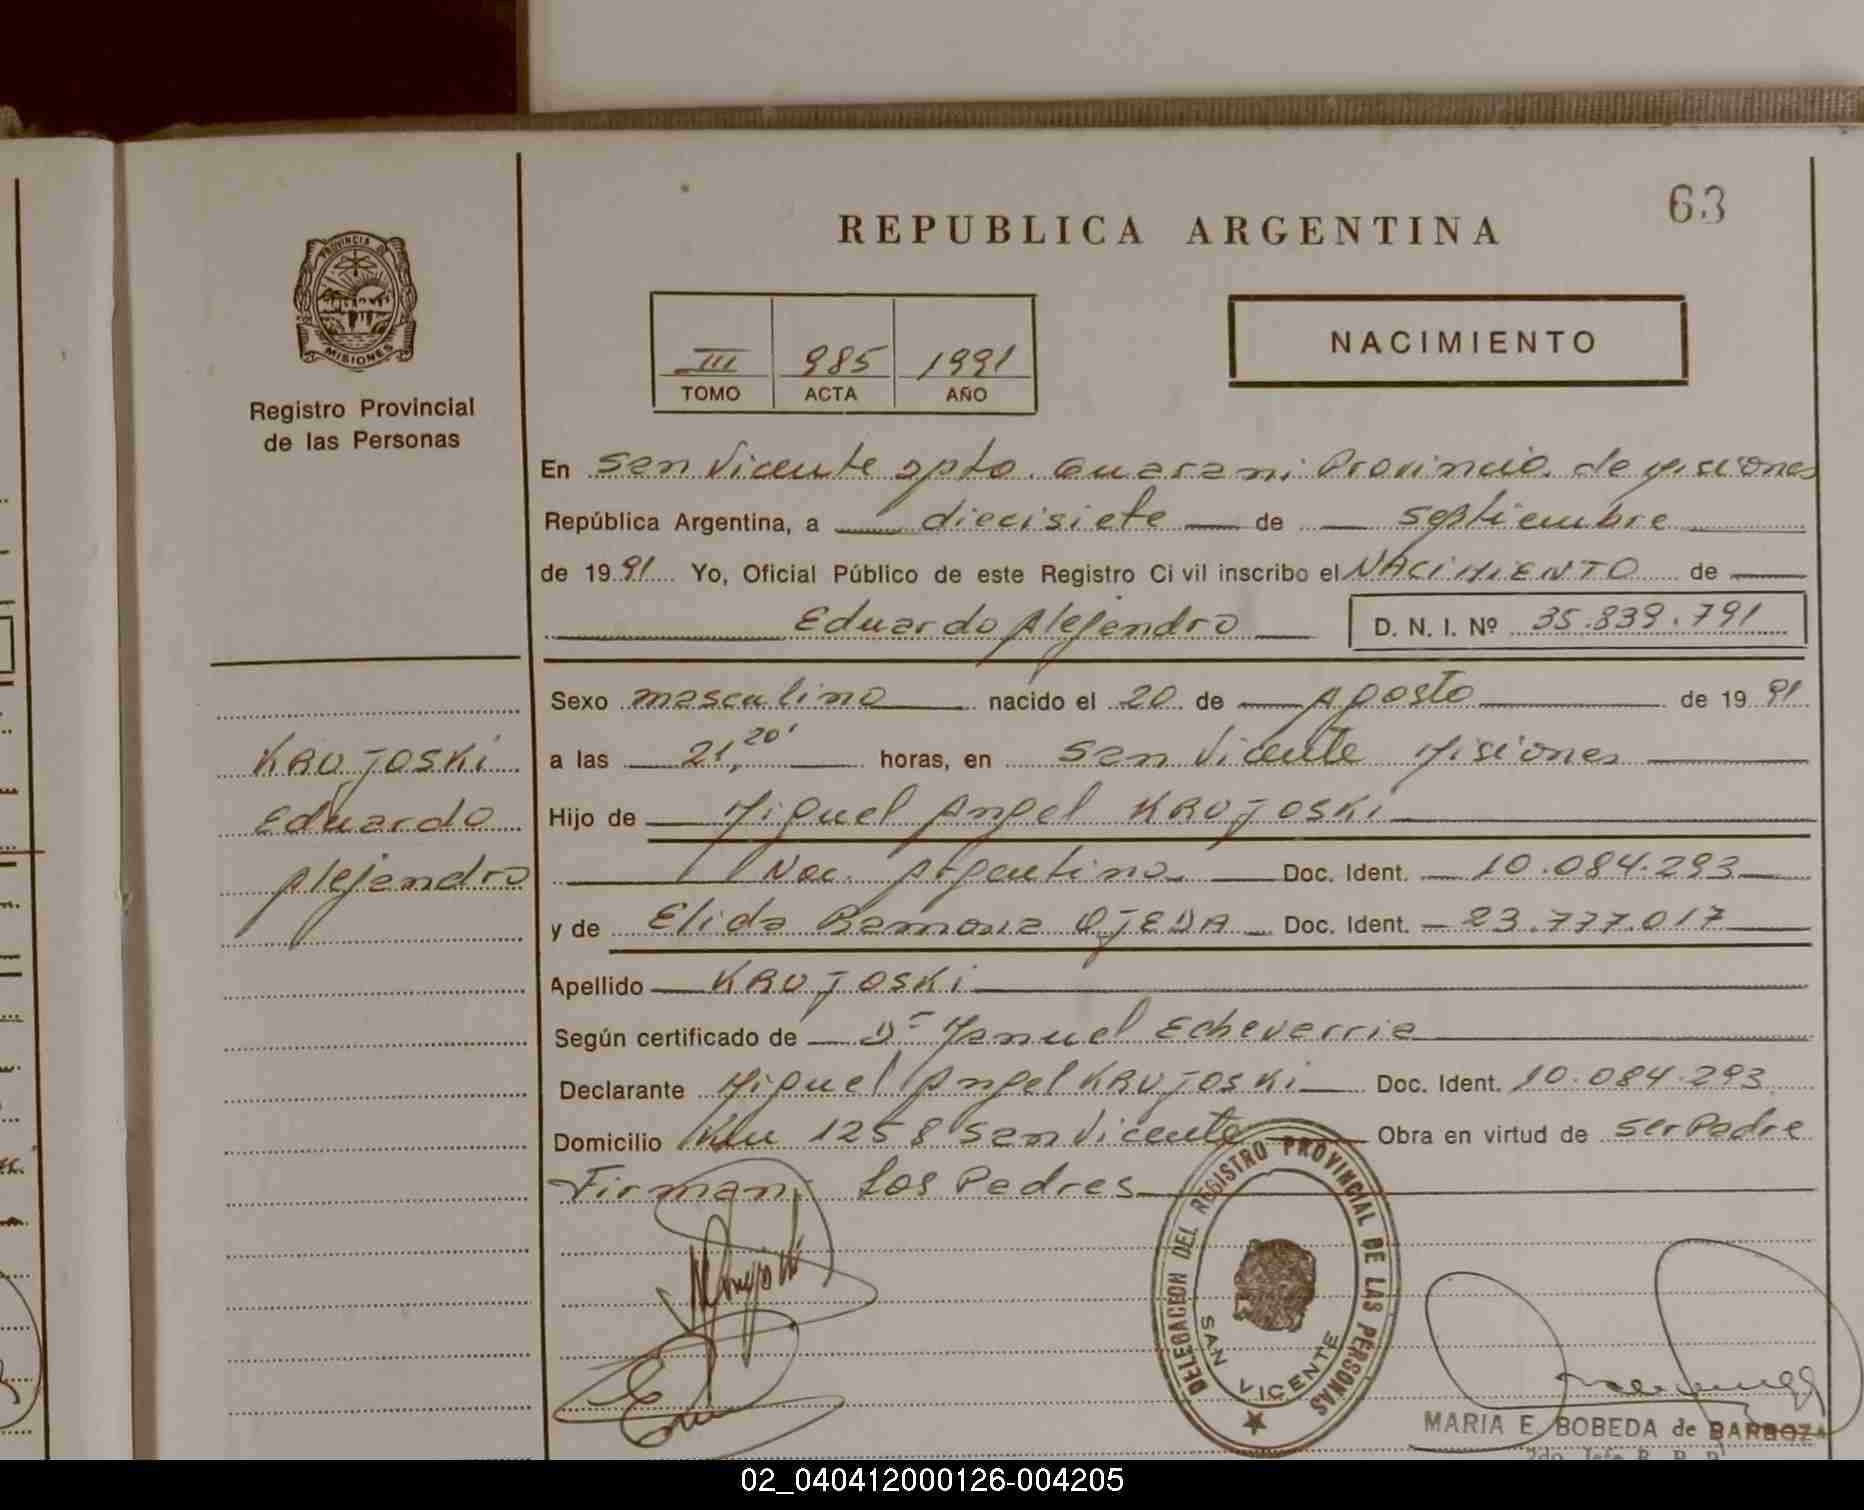 63
REPUBLICA ARGENTINA
PROVINCIA DE
MISIONES
Registro Provincial
de las Personas
III 985 1991
TOMO ACTA AÑO
NACIMIENTO
En San Vicente Dpto. Guarani Provincia de Misiones
República Argentina, a diecisiete de septiembre
de 1991 Yo, Oficial Público de este Registro Civil inscribo el NACIMIENTO de
Eduardo Alejandro D. N. I. Nº 35.839.791
Sexo masculino nacido el 20 de Agosto de 1991
KRUJOSKi
Eduardo
Alejandro
a las 21,20' horas, en San Vicente Misiones
Hijo de Miguel Angel KRUJOSKi
Nac. Argentina Doc. Ident. 10.084.293
y de Elida Ramona OJEDA Doc. Ident. 23.777.017
Apellido KRUJOSKi
Según certificado de Dr Manuel Echeverria
Declarante Miguel Angel KRUJOSKi Doc. Ident. 10.084.293
Domicilio Km 1258 San Vicente Obra en virtud de ser Padre
Firman: Los Padres
DELEGACION DEL REGISTRO PROVINCIAL DE LAS PERSONAS
SAN VICENTE
MARIA E. BOBEDA de BARBOZA
2do. Jefe R. P. P.
02_040412000126-004205